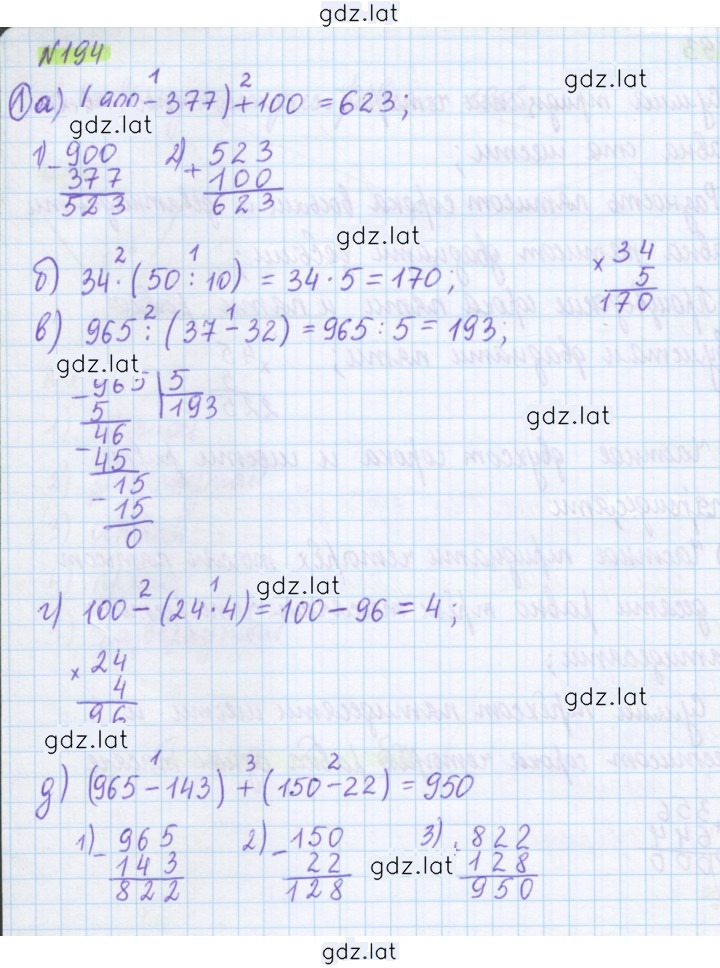 gdz.lat
№194
1 а) (900 - 377) + 100 = 623;
gdz.lat
gdz.lat
1) - 900
377
523
2) + 523
100
623
gdz.lat
б) 34 · (50 : 10) = 34 · 5 = 170;
× 34
5
170
в) 965 : (37 - 32) = 965 : 5 = 193;
gdz.lat
- 965 | 5
5 | 193
- 46
45
- 15
15
0
gdz.lat
г) 100 - (24 · 4) = 100 - 96 = 4;
gdz.lat
× 24
4
96
gdz.lat
gdz.lat
д) (965 - 143) + (150 - 22) = 950
1) - 965
143
822
2) - 150
22
128
3) 822
128
950
gdz.lat
gdz.lat